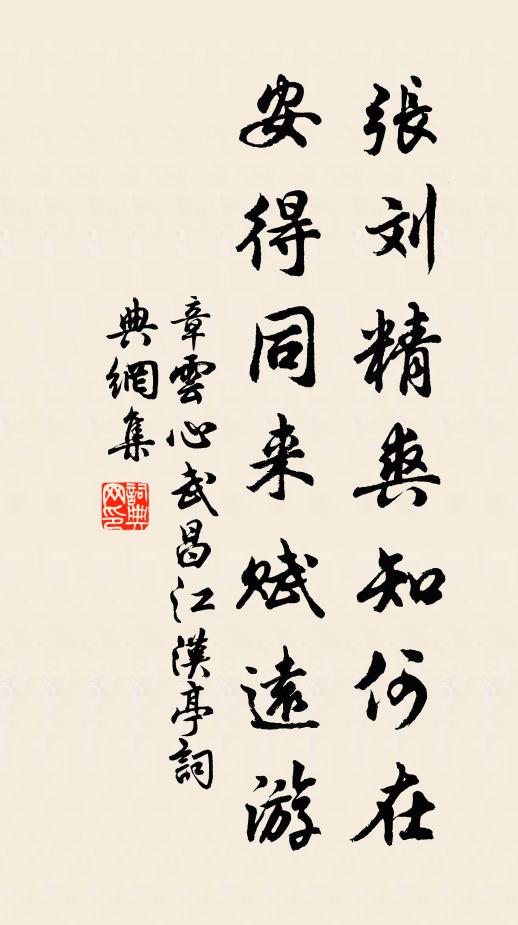 張刘精爽知何在
安得同来赋遠游
章雲心武昌江漢亭詞
典網集
詞典
网印